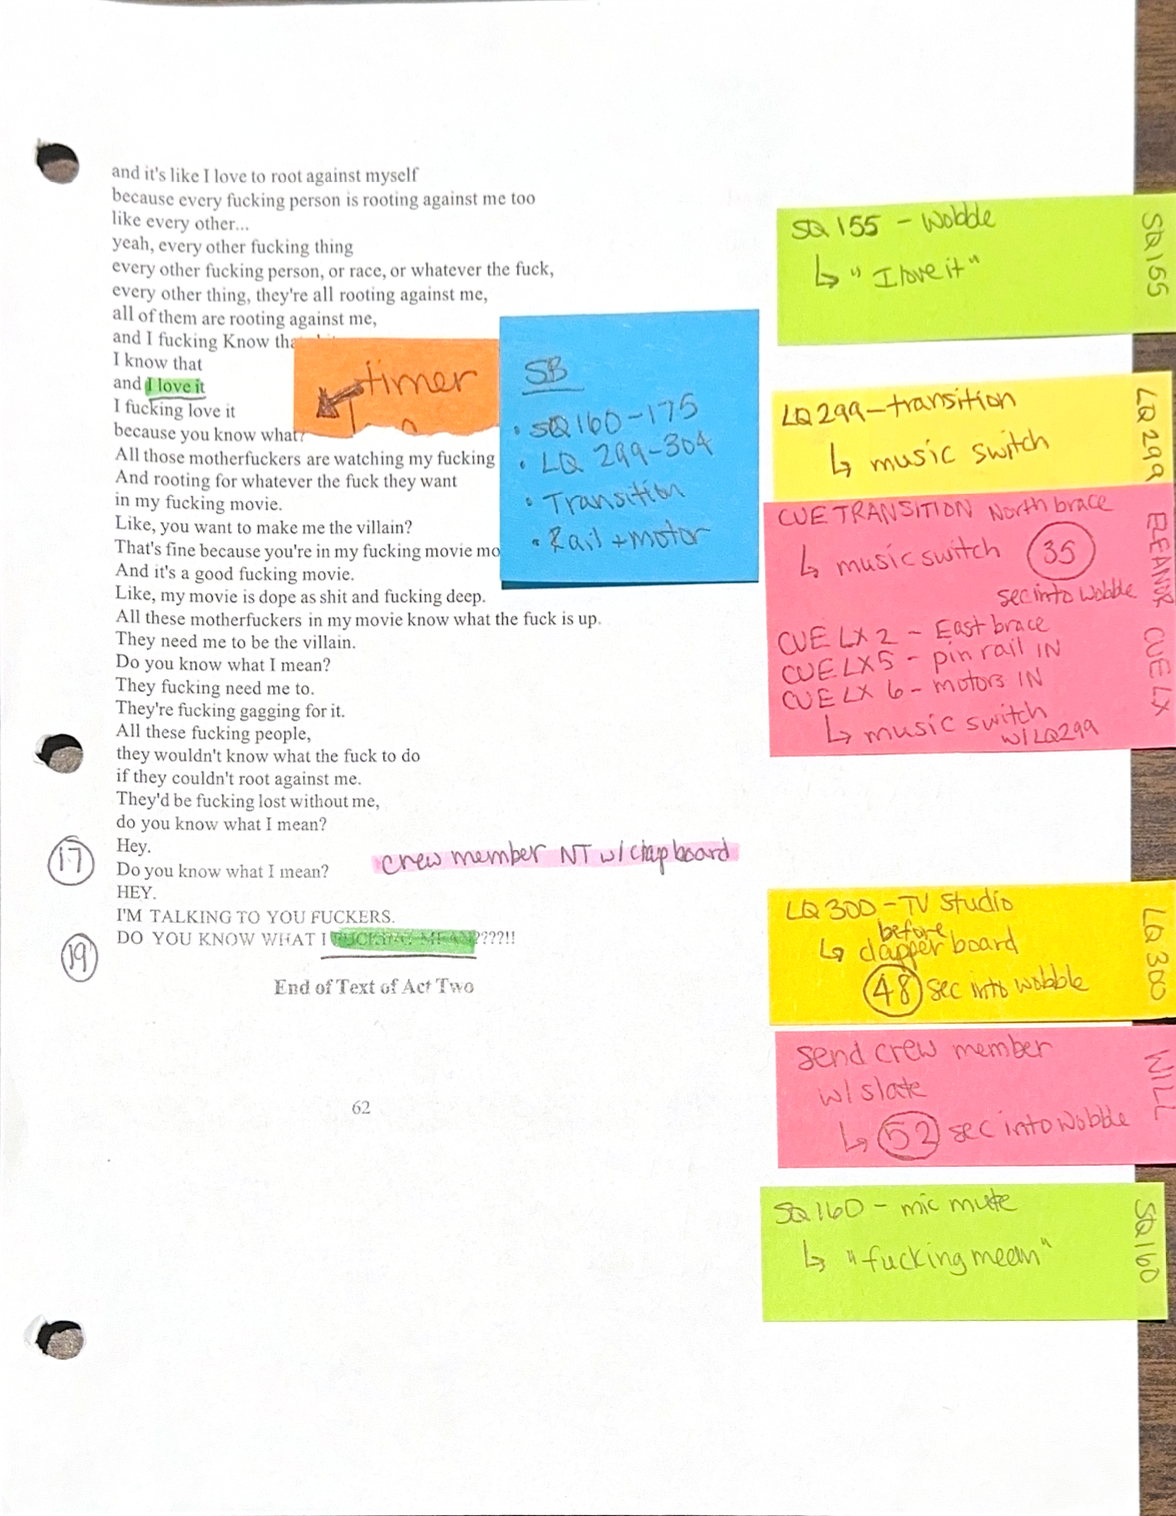 and it's like I love to root against myself
because every fucking person is rooting against me too
like every other...
yeah, every other fucking thing
every other fucking person, or race, or whatever the fuck,
every other thing, they're all rooting against me,
all of them are rooting against me,
and I fucking Know
I know that
and I love it
I fucking love it
because you know what?
All those motherfuckers are watching my fucking
And rooting for whatever the fuck they want
in my fucking movie.
Like, you want to make me the villain?
That's fine because you're in my fucking movie
And it's a good fucking movie.
Like, my movie is dope as shit and fucking deep.
All these motherfuckers in my movie know what the fuck is up.
They need me to be the villain.
Do you know what I mean?
They fucking need me to.
They're fucking gagging for it.
All these fucking people,
they wouldn't know what the fuck to do
if they couldn't root against me.
They'd be fucking lost without me,
do you know what I mean?
Hey.
17
Do you know what I mean?
crew member NT w/ clapboard
HEY.
I'M TALKING TO YOU FUCKERS.
DO YOU KNOW WHAT I FUCKING MEAN????!!
19
End of Text of Act Two
62
timer
SB
• SQ160-175
• LQ 299-304
• Transition
• Rail + motor
SQ155 - Wobble
↳ "I love it"
SQ155
LQ299-transition
↳ music switch
LQ299
CUE TRANSITION North brace
↳ music switch 35
sec into wobble
CUE LX 2 - East brace
CUE LX5 - pin rail IN
CUE LX 6 - motors IN
↳ music switch
w/ LQ299
ELEANOR CUE LX
LQ300-TV Studio
before
↳ clapper board
48 sec into wobble
LQ300
send crew member
w/ slate
↳ 52 sec into wobble
WILL
SQ160 - mic mute
↳ "fucking mean"
SQ160